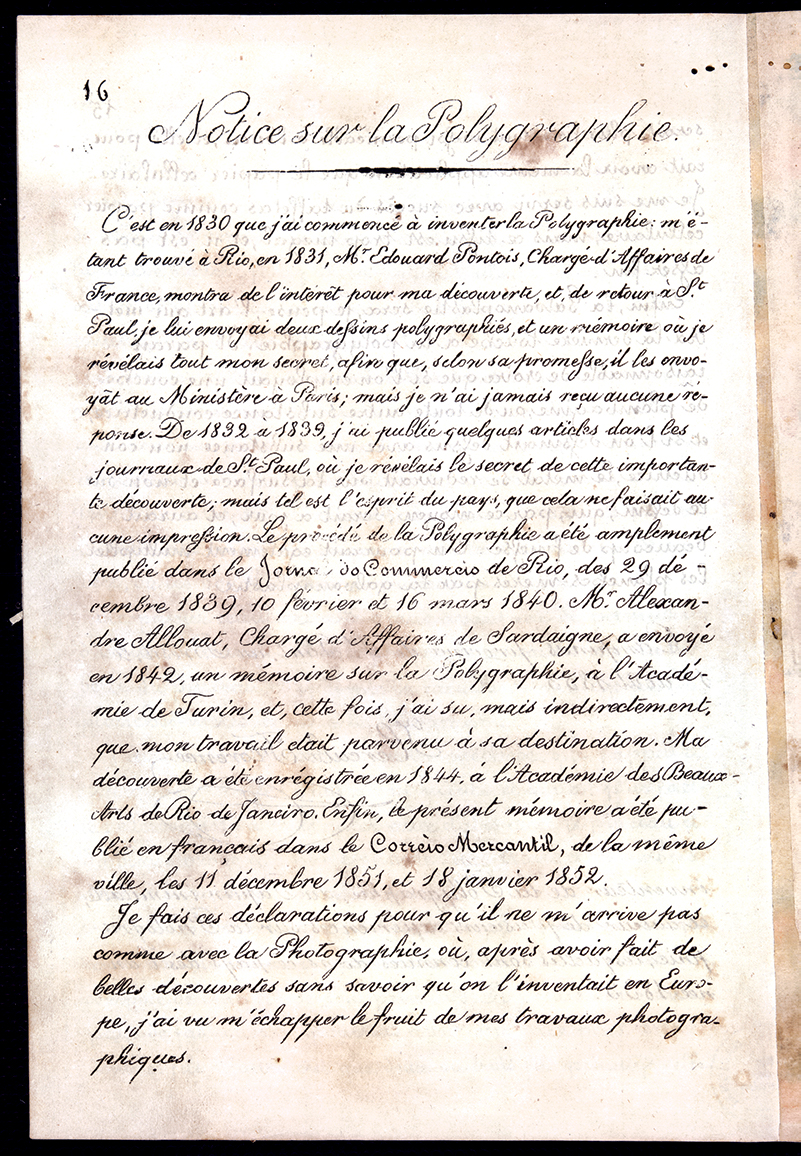 16
Notice sur la Polygraphie.
C'est en 1830 que j'ai commencé à inventer la Polygraphie: m'é-
tant trouvé à Rio, en 1831, Mr. Edouard Pontois, Chargé d'Affaires de
France, montra de l'intérêt pour ma découverte, et, de retour à St.
Paul, je lui envoyai deux dessins polygraphiés, et un mémoire où je
révélais tout mon secret, afin que, selon sa promesse, il les envo-
yât au Ministère à Paris; mais je n'ai jamais reçu aucune ré-
ponse. De 1832 à 1839, j'ai publié quelques articles dans les
journaux de St. Paul, où je révélais le secret de cette importan-
te découverte; mais tel est l'esprit du pays, que cela ne faisait au-
cune impression. Le procédé de la Polygraphie a été amplement
publié dans le Jornal do Commercio de Rio, des 29 dé-
cembre 1839, 10 février et 16 mars 1840. Mr. Alexan-
dre Allouat, Chargé d'Affaires de Sardaigne, a envoyé
en 1842, un mémoire sur la Polygraphie, à l'Acadé-
mie de Turin, et, cette fois, j'ai su, mais indirectement,
que mon travail etait parvenu à sa destination. Ma
découverte a été enrégistrée en 1844, à l'Académie des Beaux-
Arts de Rio de Janeiro. Enfin, le présent mémoire a été pu-
blié en francais dans le Corrèio Mercantil, de la même
ville, les 11 décembre 1851, et 18 janvier 1852.
Je fais ces déclarations pour qu'il ne m'arrive pas
comme avec la Photographie, où, après avoir fait de
belles découvertes sans savoir qu'on l'inventait en Euro-
pe, j'ai vu m'échapper le fruit de mes travaux photogra-
phiques.